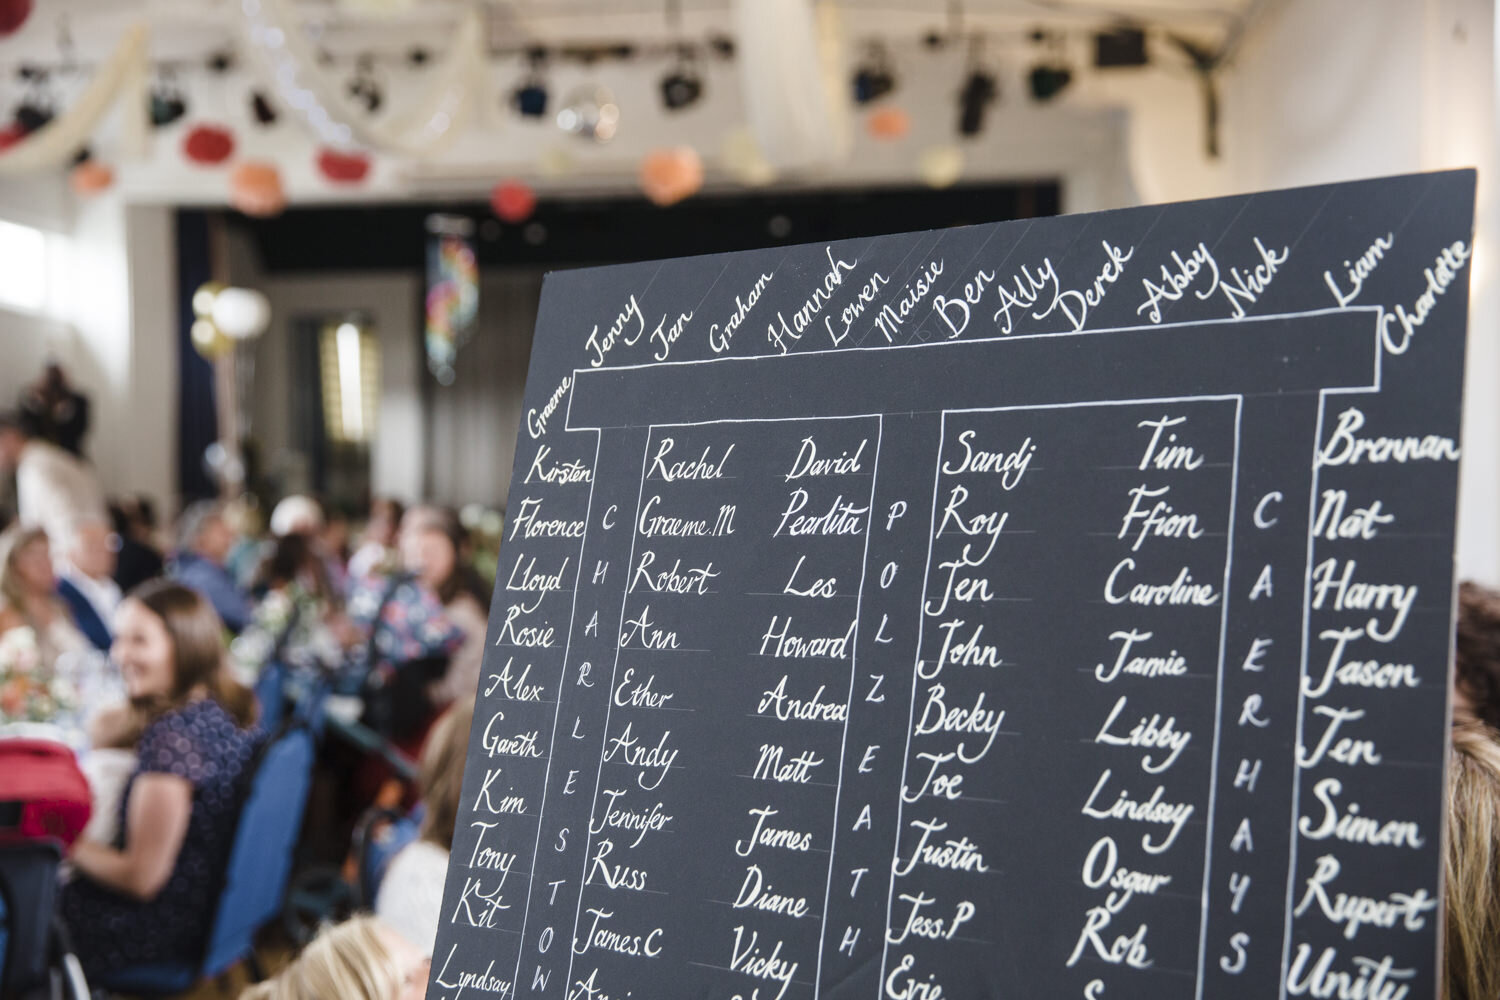 Graeme Jenny Jan Graham Hannah Lowen Maisie Ben Ally Derek Abby Nick Liam Charlotte
Kirsten Rachel David Sandj Tim Brennan
Florence Graeme.M Pearlita Roy Ffion Nat
Lloyd Robert Les Jen Caroline Harry
Rosie Ann Howard John Jamie Jason
Alex Ether Andrea Becky Libby Jen
Gareth Andy Matt Joe Lindsey Simon
Kim Jennifer James Justin Osgar Rupert
Tony Russ Diane Jess.P Rob Unity
Kit James.C Vicky Evie
Lyndsay
CHARLESTOW
POLZEATH
CAERHAYS